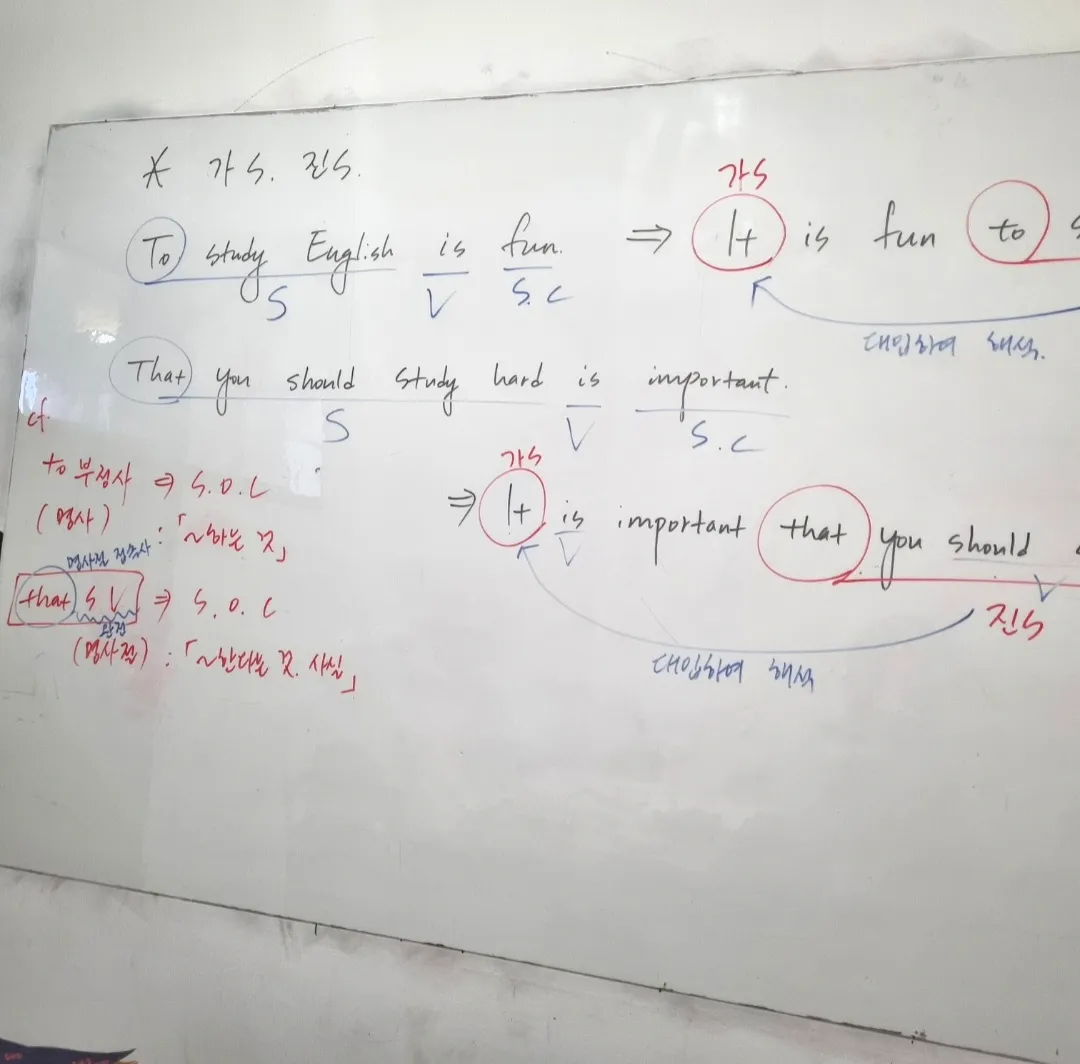 * 가S. 진S.
To study English is fun. ⇒ It is fun to s
가S
S V S.C
대입하여 해석.
That you should study hard is important.
S V S.C
가S
⇒ It is important that you should
V V
진S
대입하여 해석
cf
to 부정사 ⇒ S.O.C
(명사) : 「~하는 것」
명사절 접속사
that S V ⇒ S.O.C
완전
(명사절) : 「~한다는 것. 사실」